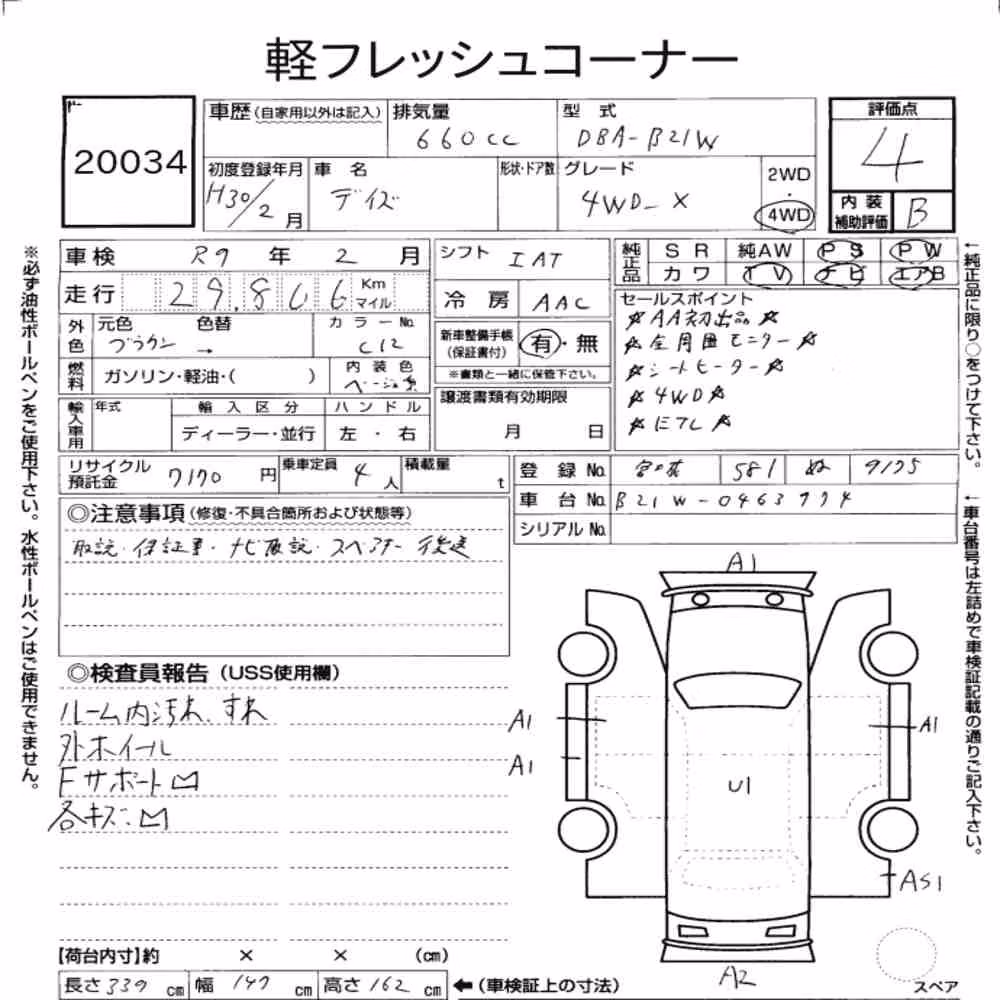 軽フレッシュコーナー
20034
車歴(自家用以外は記入) 排気量 660cc 型式 DBA-B21W
初度登録年月 H30/2月 車名 デイズ 形状・ドア数 グレード 4WD-X 2WD・4WD
評価点 4
内装補助評価 B
車検 R9年2月
走行 29,866 Km マイル
シフト IAT
冷房 AAC
純正品 SR 純AW PS PW
カワ TV ナビ エアB
外色 元色 ブラウン → 色替 カラーNo. C12
燃料 ガソリン・軽油・( ) 内装色
新車整備手帳(保証書付) 有・無
※書類と一緒に保管下さい。
輸入車用 年式 輸入区分 ハンドル
ディーラー・並行 左・右
譲渡書類有効期限
月 日
セールスポイント
☆AA初出品☆
☆全周囲モニター☆
☆シートヒーター☆
☆4WD☆
リサイクル預託金 7170円 乗車定員 4人 積載量 t
登録No. 581 ぬ
車台No. B21W-0463774
シリアルNo.
◎注意事項(修復・不具合箇所および状態等)
取説・保証書・ナビ取説・スペアキー後送
◎検査員報告(USS使用欄)
ルーム内汚れ、すれ
外ホイール
Fサポート凹
各キズ凹
A1
A1
A1
A1
U1
AS1
A2
スペア
【荷台内寸】約 × × (cm)
長さ339cm 幅147cm 高さ162cm ←(車検証上の寸法)
※必ず油性ボールペンをご使用下さい。水性ボールペンはご使用できません。
←純正品に限り○をつけて下さい。
←車台番号は左詰めで車検証記載の通りご記入下さい。